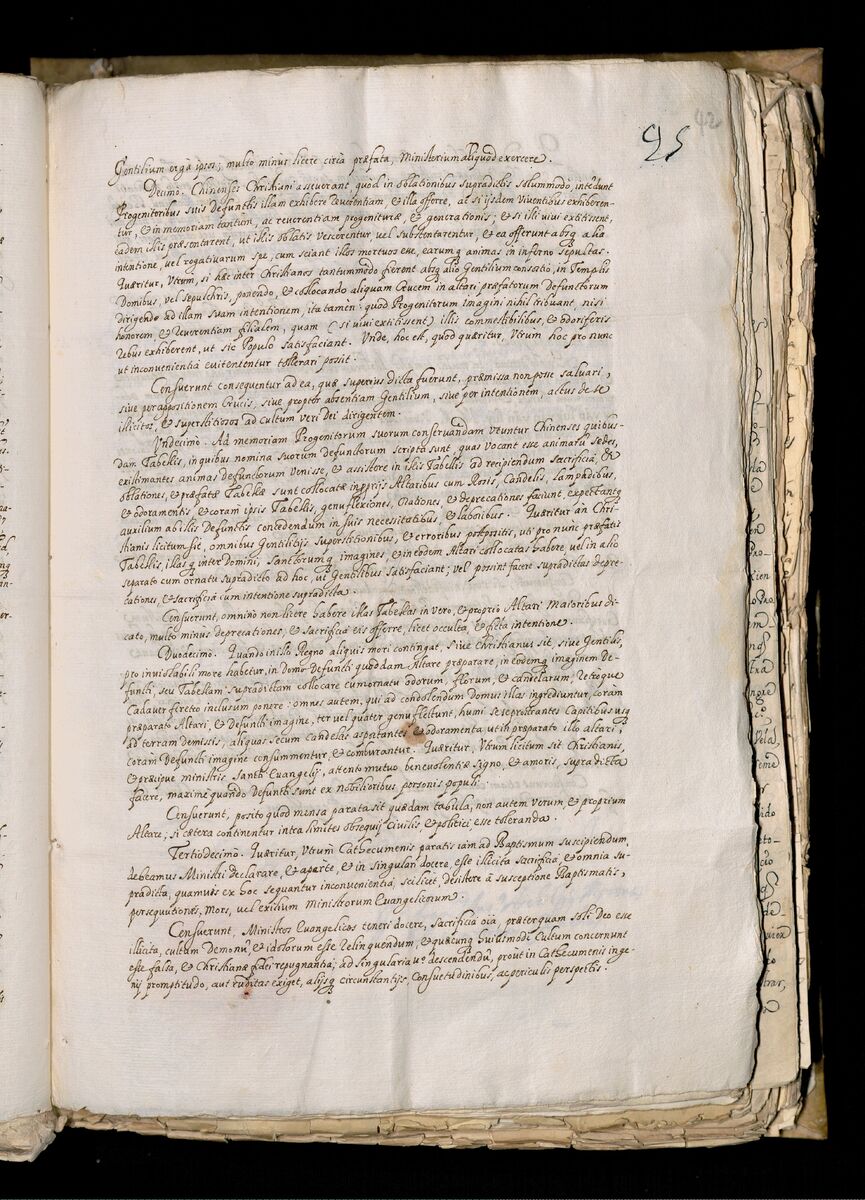 95 42
Gentilium ergà ipsos; multo minùs licere circà præfata, Ministerium aliquod exercere.
Decimò. Chinenses Christiani asseuerant, quod in oblationibus supradictis solummodò, intẽdunt
Progenitoribus suis Defunctis illam exhibere Reuerentiam, & illa offerre, ac si ijsdem Viuentibus exhiberen-
tur, & in memoriam tantùm, ac reuerentiam progenituræ, & generationis; & si illi viui extitissent,
eadem illis præsentarent, ut illis oblatis vescerentur vel substentarentur, & ea offerunt absq alia
intentione, vel rogatiuarum spe, cum sciant illos mortuos esse, earumq animas in inferno sepultas.
Quæritur, Vtrum, si hæc inter Christianos tantummodò fierent absq alio Gentilium consatio, in Templis
Domibus, vel sepulchris, ponendo, & collocando aliquam Crucem in altari præfatorum Defunctorum
dirigendo ad illam suam intentionem, ita tamèn: quod Progenitorum imagini nihil tribuant, nisi
honorem & Reuerentiam filialem, quam (si viui extitissent) illis commestibilibus, & odoriferis
rebus exhiberent, ut sic Populo satisfaciant. Vnde, hoc est, quod quæritur, Vtrum hoc pro nunc
ut inconuenientia euitentur tollerari possit.
Censuerunt consequenter ad ea, quæ superius dicta fuerunt, præmissa non posse saluari,
siue per appositionem Crucis, siue propter absentiam Gentilium, siue per intentionem, actus de se
illicitos, & superstitiosos ad cultum veri Dei dirigentem.
Vndecimò. Ad memoriam Progenitorum suorum conseruandam vtuntur Chinenses quibus-
dam Tabellis, in quibus nomina suorum defunctorum scripta sunt, quas vocant esse animarũ sedes,
existimantes animas defunctorum venisse, & assistere in illis Tabellis ad recipiendum sacrificia, &
oblationes, & præfatæ Tabellæ sunt collocatæ in proprijs Altaribus cum Rosis, Candelis, lampadibus,
& odoramentis & coram ipsis Tabellis, genuflexiones, orationes, & deprecationes faciunt, expectantq
auxilium ab illis Defunctis concedendum in suis necessitatibus, & laboribus. Quæritur an Chri-
stianis licitum sit, omnibus Gentilitijs superstitionibus, & erroribus præpositis, ut pro nunc præfatis
Tabellis, illasq inter Domini, Sanctorumq imagines, & in eodem Altari collocatas habere, vel in alio
separato cum ornatu supradicto ad hoc, ut Gentilibus satisfaciant; vel possint facere supradictas depre-
cationes, & sacrificia cum intentione supradicta.
Censuerunt, omninò non licere habere illas Tabellas in Vero, & proprio Altari Maioribus di-
cato, multo minus deprecationes, & sacrificia eis offerre, licet occulta, & ficta intentione.
Duodecimò. Quando in illo Regno aliquis mori contingat, siue Christianus sit, siue Gentilis,
pro inuiolabili more habetur, in Domo Defuncti quoddam Altare præparare, in eodemq imaginem De-
functi, seu Tabellam supradictam collocare cum ornatu odorum, florum, & candelarum, Retroque
Cadauer firecto inclusum ponere: omnes autem, qui ad condolendum domus illas ingrediuntur, coram
præparato Altari, & Defuncti imagine, ter vel quater genuflectunt, humi se se prostrantes Capitibus usq
ad terram demissis, aliquas secum Candelas asportantes & odoramenta ut in præparato illo altari,
coram Defuncti imagine consummentur, & comburantur. Quæritur, Vtrum licitum sit Christianis,
& præcipuè ministris Sancti Euangelij, attento mutuo beneuolentiæ signo, & amoris, supradicta
facere, maximè quando Defuncti sunt ex nobilioribus personis populi.
Censuerunt, posito quod mensa parata sit quædam tabula, non autem verum, & proprium
Altare; si cætera contineantur intra limites obsequij Ciuilis, & politici, esse toleranda.
Tertiodecimò. Quæritur, Vtrum Cathecumenis paratis iam ad Baptismum suscipiendum
debeamus Ministri declarare, & apertè, & in singulari docere, esse illicita sacrificia, & omnia su-
pradicta, quamuis ex hoc sequantur inconuenientia, scilicet, desistere à susceptione Baptismatis,
persequutiones, Mors, vel exilium Ministrorum Euangelicorum.
Censuerunt, Ministros Euangelicos teneri docere, sacrificia oĩa, præterquam soli Deo esse
illicita, cultum demonũ, & idolorum esse relinquendum, & quæcunq huiusmodi Cultum concernunt
esse falsa, & Christianæ fidei repugnantia; ad singularia uerò descendendũ, prout in Cathecumenis inge-
nij promptitudo, aut ruditas exiget, alijsq circunstantijs, Consuetudinibus, ac periculis perspectis.